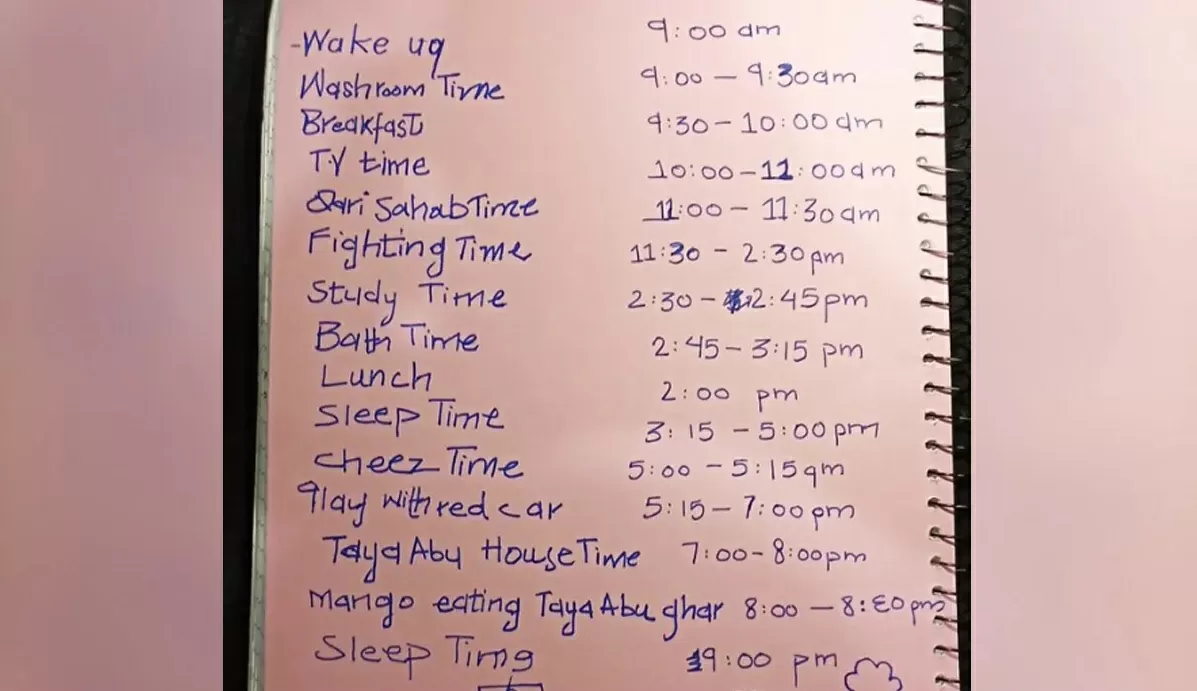 -Wake uq 9:00 am
Washroom Time 9:00 - 9:30am
Breakfast 9:30 - 10:00 am
T.V time 10:00 - 11:00am
Qari Sahab Time 11:00 - 11:30am
Fighting Time 11:30 - 2:30pm
Study Time 2:30 - 2:45pm
Bath Time 2:45 - 3:15 pm
Lunch 2:00 pm
Sleep Time 3:15 - 5:00pm
Cheez Time 5:00 - 5:15qm
qlay with red car 5:15 - 7:00pm
Taya Abu House Time 7:00 - 8:00pm
Mango eating Taya Abu ghar 8:00 - 8:30pm
Sleep Time 9:00 pm